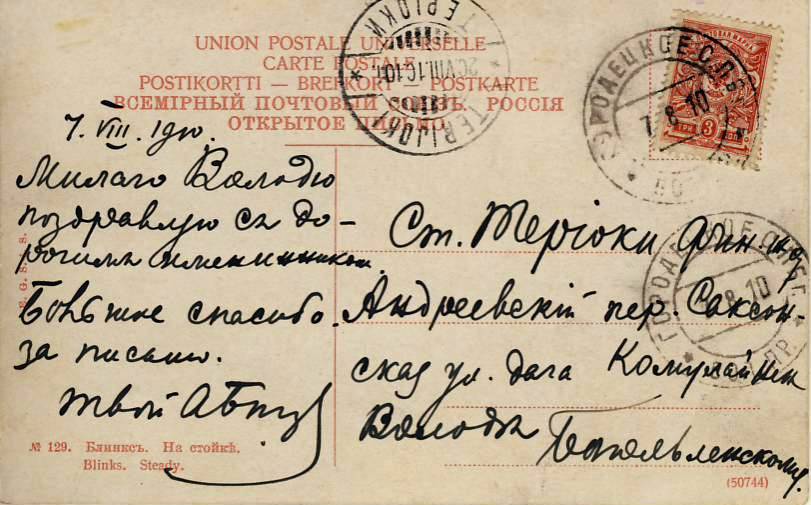 UNION POSTALE UNIVERSELLE
CARTE POSTALE
POSTIKORTTI — BREFKORT — POSTKARTE
ВСЕМІРНЫЙ ПОЧТОВЫЙ СОЮЗЪ. РОССІЯ
ОТКРЫТОЕ ПИСЬМО
ТЕРІОКИ
TERIJOKI
ГОРОДЕЦКОЕ
7.8.10
ТРИ 3 КОП
7. VIII. 1910.
Милаго Володю
поздравляю съ до-
рогимъ имениникомъ.
Большое спасибо
за письмо.
твой
Ст. Теріоки Фин.
Андреевскій пер. Саксон-
ская ул. дача
Володѣ
ГОРОДЕЦКОЕ
8.10
№ 129. Блинксъ. На стойкѣ.
Blinks. Steady.
(50744)